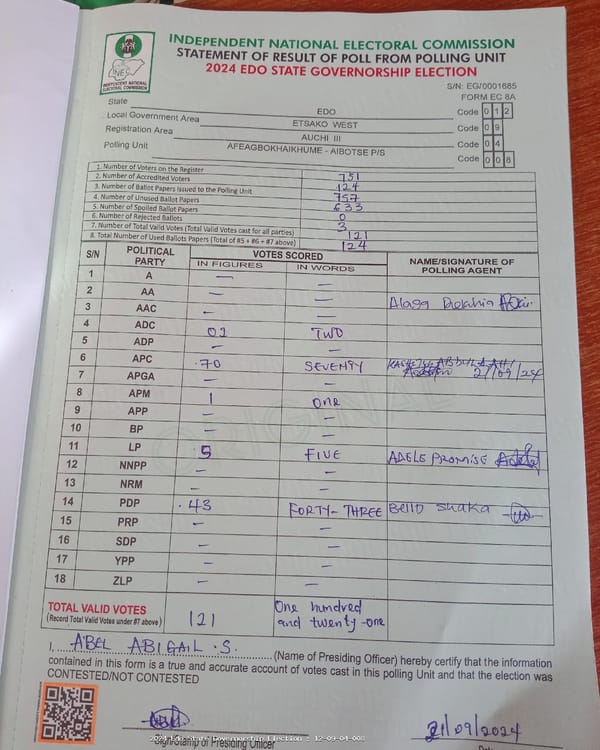 INDEPENDENT NATIONAL ELECTORAL COMMISSION
STATEMENT OF RESULT OF POLL FROM POLLING UNIT
2024 EDO STATE GOVERNORSHIP ELECTION
INDEPENDENT NATIONAL ELECTORAL COMMISSION
S/N: EG/0001685
FORM EC 8A
State EDO Code 0 1 2
Local Government Area ETSAKO WEST Code 0 9
Registration Area AUCHI III Code 0 4
Polling Unit AFEAGBOKHAIKHUME - AIBOTSE P/S Code 0 0 8
1. Number of Voters on the Register 751
2. Number of Accredited Voters 124
3. Number of Ballot Papers Issued to the Polling Unit 757
4. Number of Unused Ballot Papers 633
5. Number of Spoiled Ballot Papers 0
6. Number of Rejected Ballots 3
7. Number of Total Valid Votes (Total Valid Votes cast for all parties) 121
8. Total Number of Used Ballots Papers (Total of #5 + #6 + #7 above) 124
S/N POLITICAL PARTY VOTES SCORED NAME/SIGNATURE OF POLLING AGENT
IN FIGURES IN WORDS
1 A — —
2 AA — —
3 AAC — — Alaga
4 ADC 02 TWO
5 ADP — —
6 APC 70 SEVENTY 21/09/24
7 APGA — —
8 APM 1 one
9 APP — —
10 BP — —
11 LP 5 FIVE ADELE PROMISE
12 NNPP — —
13 NRM — —
14 PDP 43 FORTY-THREE Bello Shaka
15 PRP — —
16 SDP — —
17 YPP — —
18 ZLP — —
TOTAL VALID VOTES 121 One hundred and twenty-one
(Record Total Valid Votes under #7 above)
I, ABEL ABIGAIL .S. (Name of Presiding Officer) hereby certify that the information
contained in this form is a true and accurate account of votes cast in this polling Unit and that the election was
CONTESTED/NOT CONTESTED
21/09/2024
2024 Edo State Governorship Election : 12-09-04-008
Sign/Stamp of Presiding Officer